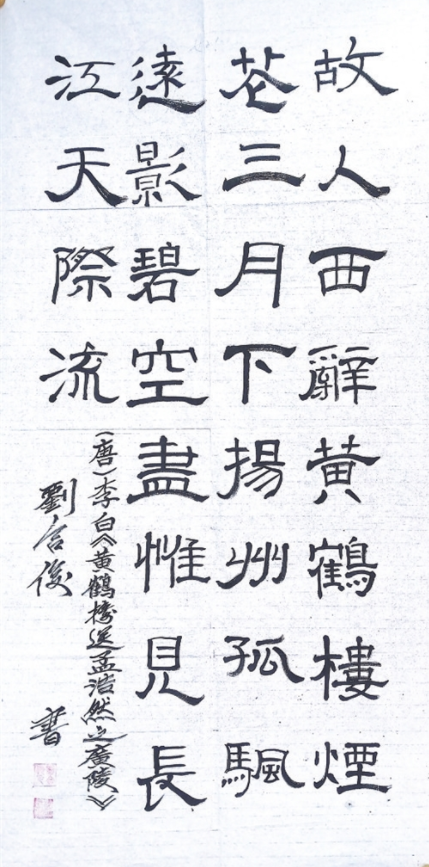 故人西辭黄鶴樓煙
花三月下揚州孤颿
遠影碧空盡惟見長
江天際流
(唐)李白《黄鶴楼送孟浩然之廣陵》
劉合俊 書